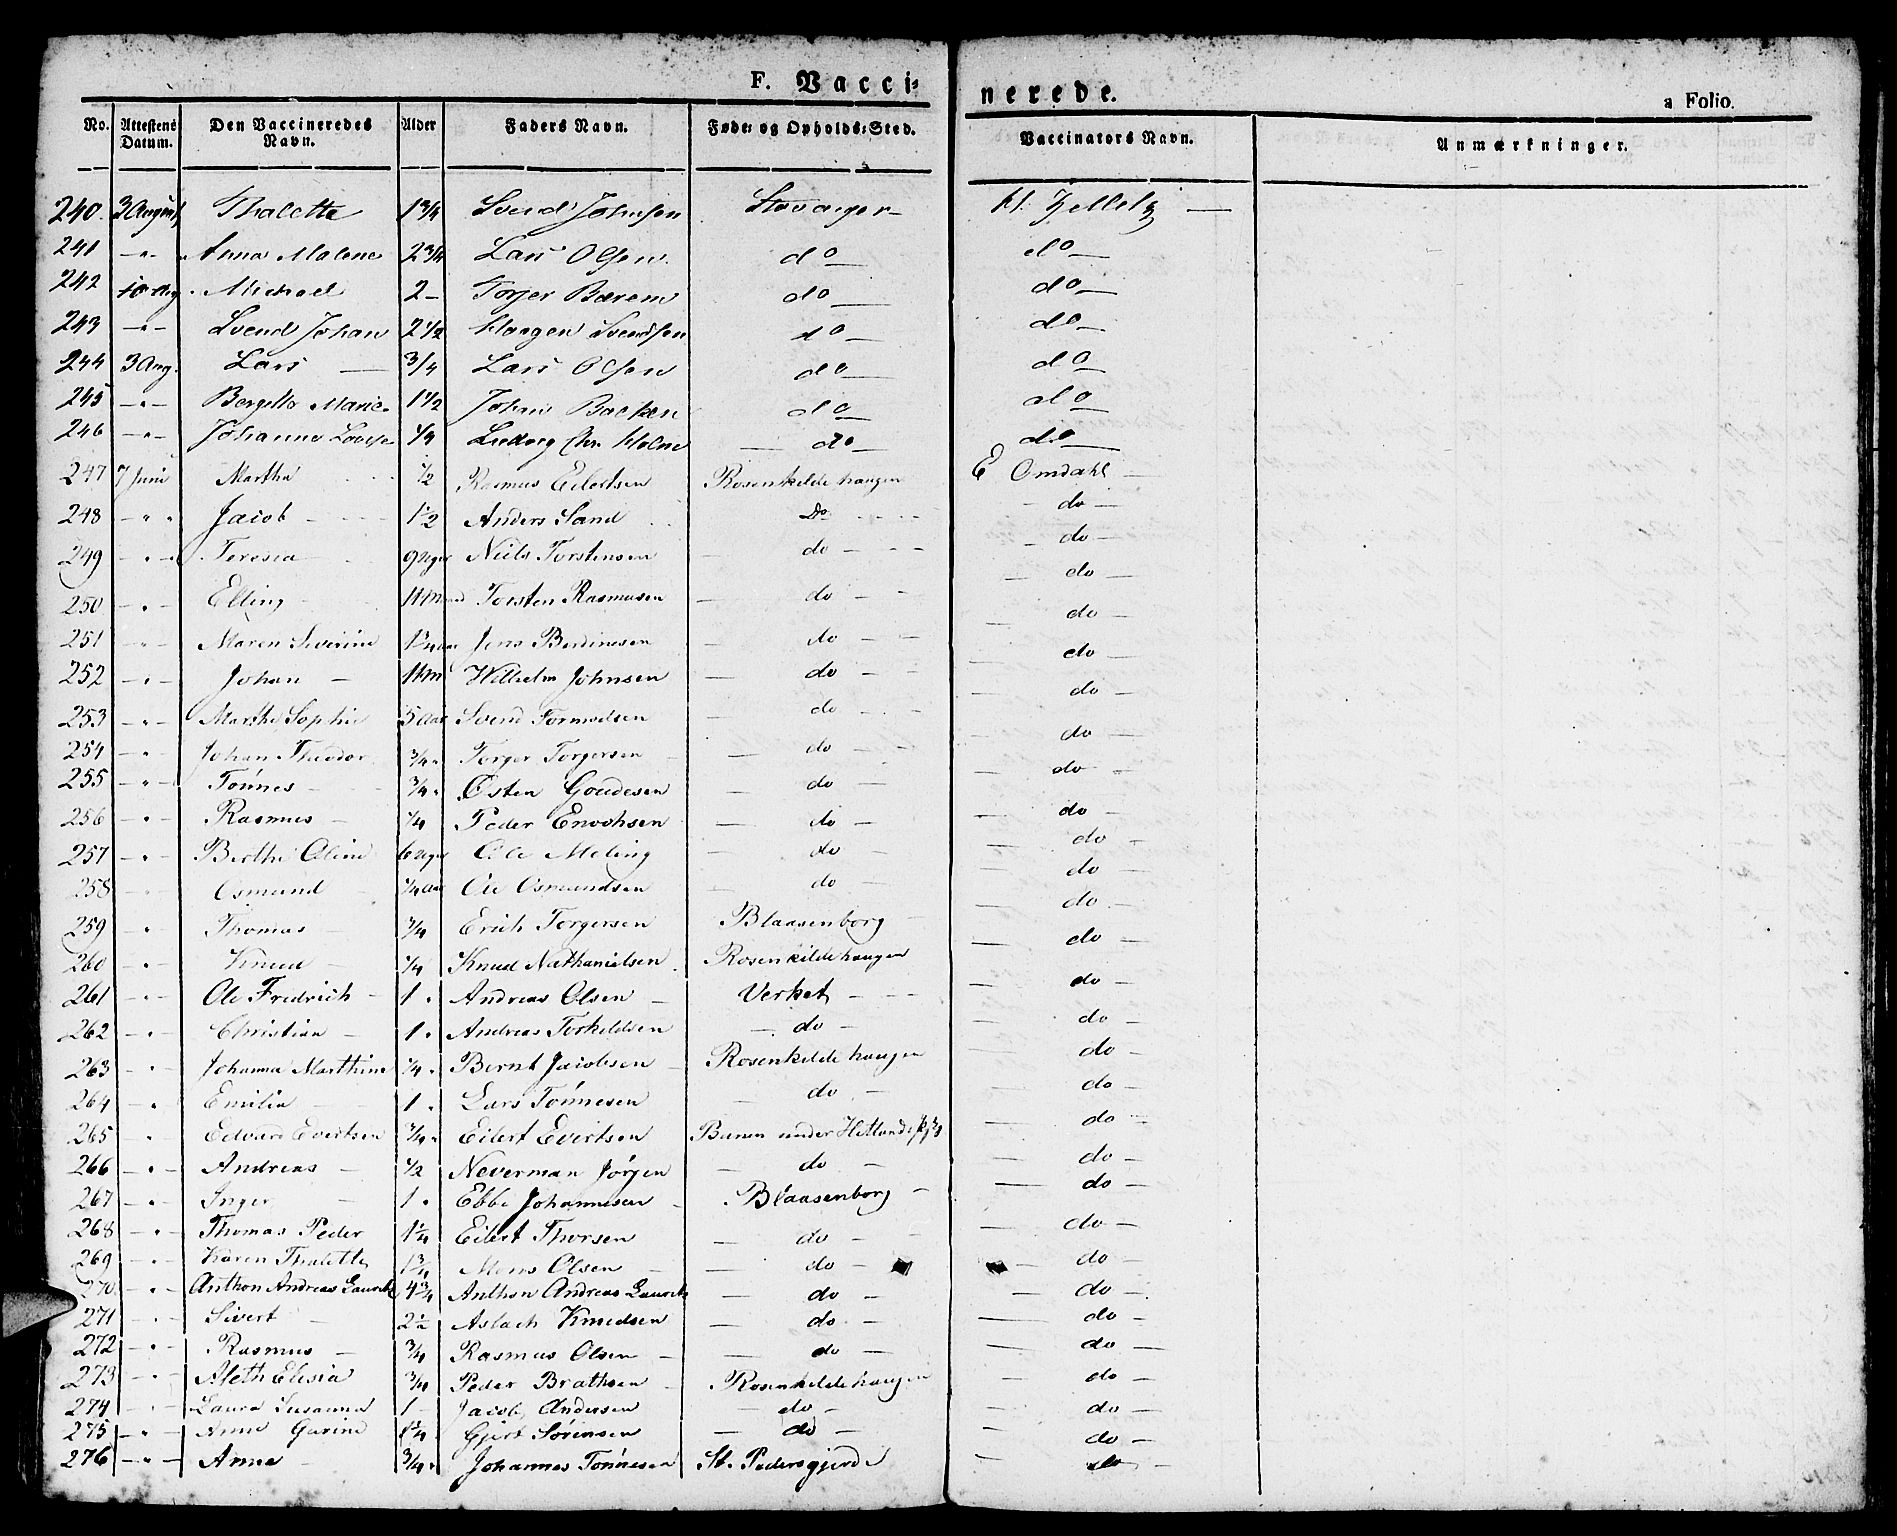 F. Vacci=
nerede.
a Folio.
No. Attestens Datum. Den Vaccineredes Navn. Alder Faders Navn. Føde= og Opholds=Sted. Vaccinators Navn. Anmærkninger.
240. 3 August Thalette 1 3/4 Svend Johnsen Stavanger
241 -"- Anna Malene 2 3/4 Lars Olsen do do
242 10 Aug Michael 2 - Torjer Barem do do
243 -"- Svend Johan 2 1/2 Haagen Svendsen do do
244 3 Aug. Lars 3/4 Lars Olsen do do
245 -"- Bergitte Marie 1 1/2 Johan Backen do do
246 -"- Johanne Lovise 1/4 Ludvig Chr. Holm do do
247 7 Juni Martha 1/2 Rasmus Eilertsen Rosenkildehaugen E Omdahl
248 - " " Jacob 1 1/2 Anders Sand Do do
249 - " - Teresia 9 Uger Niels Torstensen do do
250 - " - Elling 11 Maaned Torsten Rasmusen do do
251 - " - Maren Severine 1 1/4 Aar Jens Berdinesen do do
252 - " - Johan 11 M Wilhelm Johnsen do do
253 - " - Marthe Sophie 5 Aar Svend Tormodsen do do
254 - " - Johan Theodor 3/4 " Torger Torgersen do do
255 - " - Tónnes 3/4 " Østen Goudesen do do
256 - " - Rasmus 1/4 Peder Enochsen do do
257 - " - Berthe Oline 6 Uger Ole Meling do do
258 - " - Osmund 1/4 Aar Ole Osmundsen do do
259 " Thomas 3/4 Erich Torgersen Blaasenborg do
260 - " - Knud 1/4 Knud Nathanielsen Rosenkildehaugen do
261 - " - Ole Fredrich 1 " Andreas Olsen Verket do
262 - " - Christian 1 " Andreas Torkildsen do do
263 - " - Johanna Marthine 1/4 " Bernt Jacobsen Rosenkildehaugen do
264 - " - Emilia 1 " Lars Tónnesen do do
265 " Edvard Evertsen 3/4 " Eilert Evertsen Banen under Hetlands do
266 - " - Andreas 1/2 Neverman Jórgen do do
267 - " - Inger 1 " Ebbe Johannesen Blaasenborg do
268 - " - Thomas Peder 1 1/4 Eilert Thorsen do do
269 - " - Karen Thalette 1 3/4 Mons Olsen do do
270 - " - Anthon Andreas Laurits 4 3/4 Anthon Andreas Laurits do do
271 - " - Sivert 2 1/2 Aslach Knudsen do do
272 - " - Rasmus 3/4 Rasmus Olsen do do
273 - " - Aleth Elisia 3/4 Peder Brathsen Rosenkildehaugen do
274 - " - Laura Susanna 1 - Jacob Andersen do do
275 - " - Anne Gurine 1 1/4 Gjert Sórensen do do
276 - " - Anna 3/4 " Johannes Tónnesen St. Pedersgjerde do